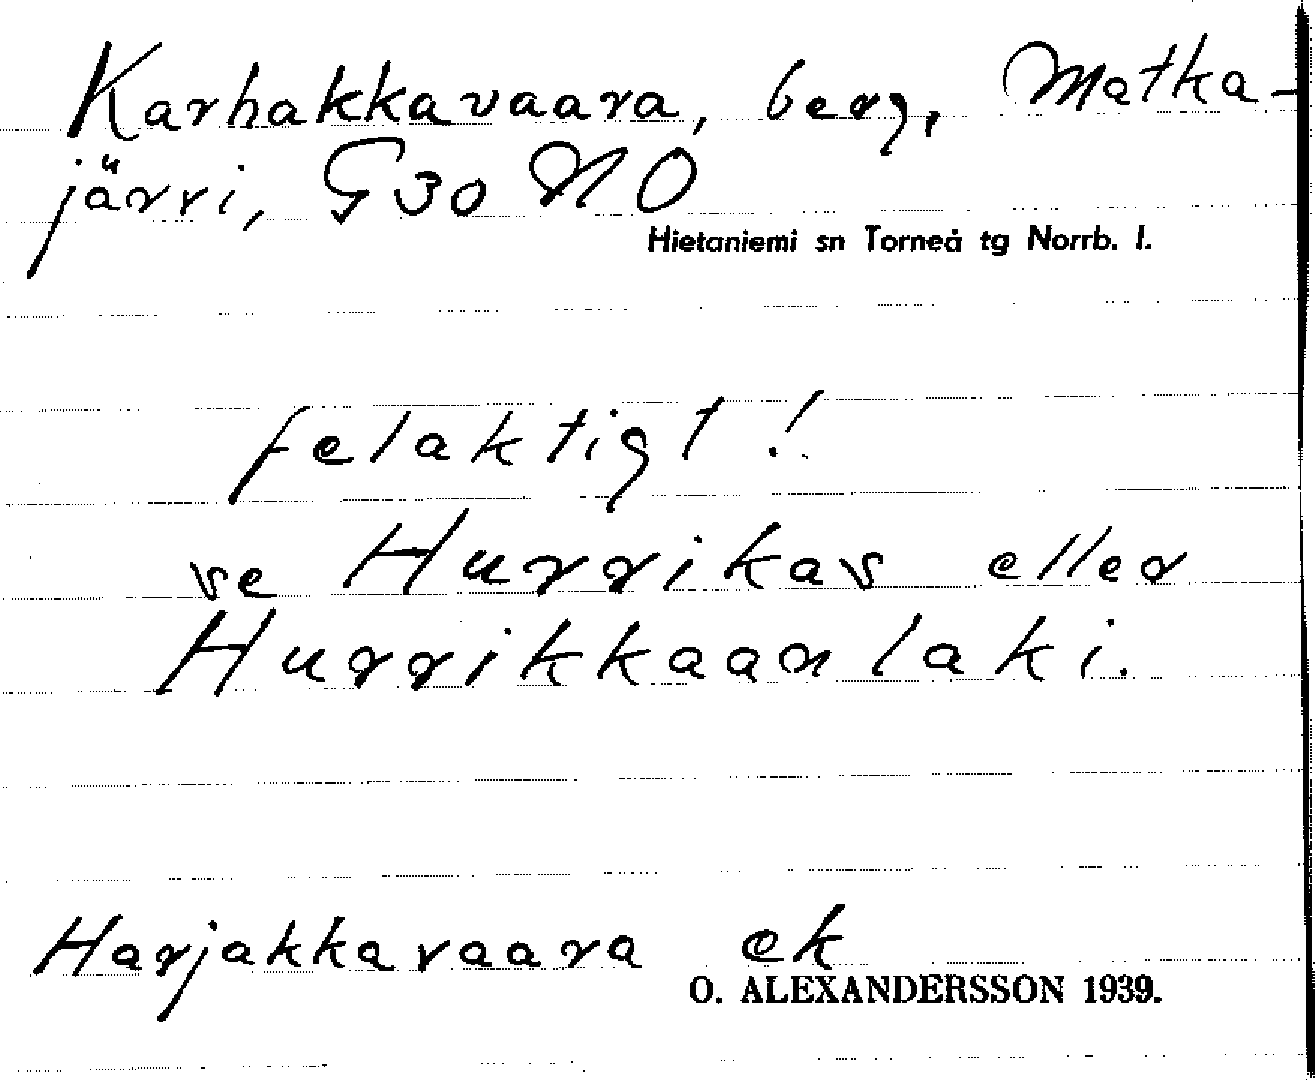 Karhakkavaara, berg, Matka-
järvi, G 30 NO
Hietaniemi sn Torneå tg Norrb. l.
felaktigt!
se Hurrikas eller
Hurrikkaanlaki.
Harjakkavaara ek
O. ALEXANDERSSON 1939.